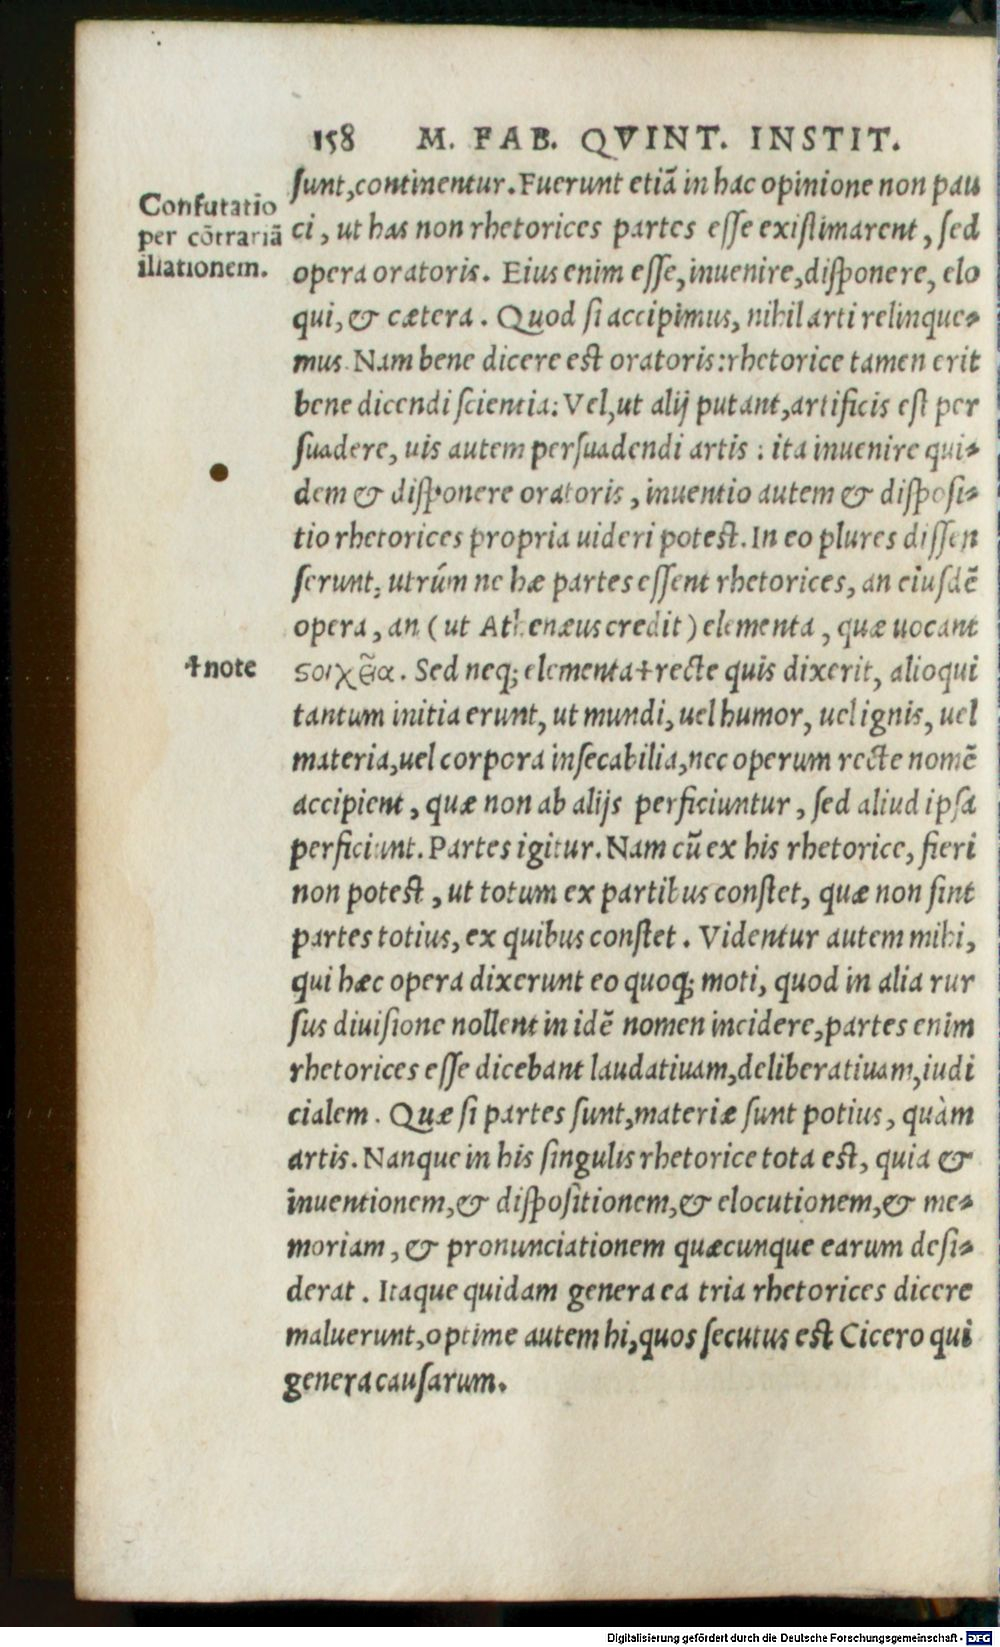 158 M. FAB. QVINT. INSTIT.
Confutatio
per cōtrariā
illationem.
sunt, continentur. Fuerunt etiā in hac opinione non pau
ci, ut has non rhetorices partes esse existimarent, sed
opera oratoris. Eius enim esse, inuenire, disponere, elo
qui, & cætera. Quod si accipimus, nihil arti relinque-
mus. Nam bene dicere est oratoris: rhetorice tamen erit
bene dicendi scientia: Vel, ut alij putant, artificis est per
suadere, uis autem persuadendi artis: ita inuenire qui-
dem & disponere oratoris, inuentio autem & disposi-
tio rhetorices propria uideri potest. In eo plures dissen
serunt, utrúm ne hæ partes essent rhetorices, an eiusdē
opera, an (ut Athenæus credit) elementa, quæ uocant
†note
ϛοιχεῖα. Sed neq; elementa † recte quis dixerit, alioqui
tantum initia erunt, ut mundi, uel humor, uel ignis, uel
materia, uel corpora insecabilia, nec operum recte nomē
accipient, quæ non ab alijs perficiuntur, sed aliud ipsa
perficiunt. Partes igitur. Nam cū ex his rhetorice, fieri
non potest, ut totum ex partibus constet, quæ non sint
partes totius, ex quibus constet. Videntur autem mihi,
qui hæc opera dixerunt eo quoq; moti, quod in alia rur
sus diuisione nollent in idē nomen incidere, partes enim
rhetorices esse dicebant laudatiuam, deliberatiuam, iudi
cialem. Quæ si partes sunt, materiæ sunt potius, quàm
artis. Nanque in his singulis rhetorice tota est, quia &
inuentionem, & dispositionem, & elocutionem, & me-
moriam, & pronunciationem quæcunque earum desi-
derat. Itaque quidam genera ea tria rhetorices dicere
maluerunt, optime autem hi, quos secutus est Cicero qui
genera causarum.
Digitalisierung gefördert durch die Deutsche Forschungsgemeinschaft - DFG